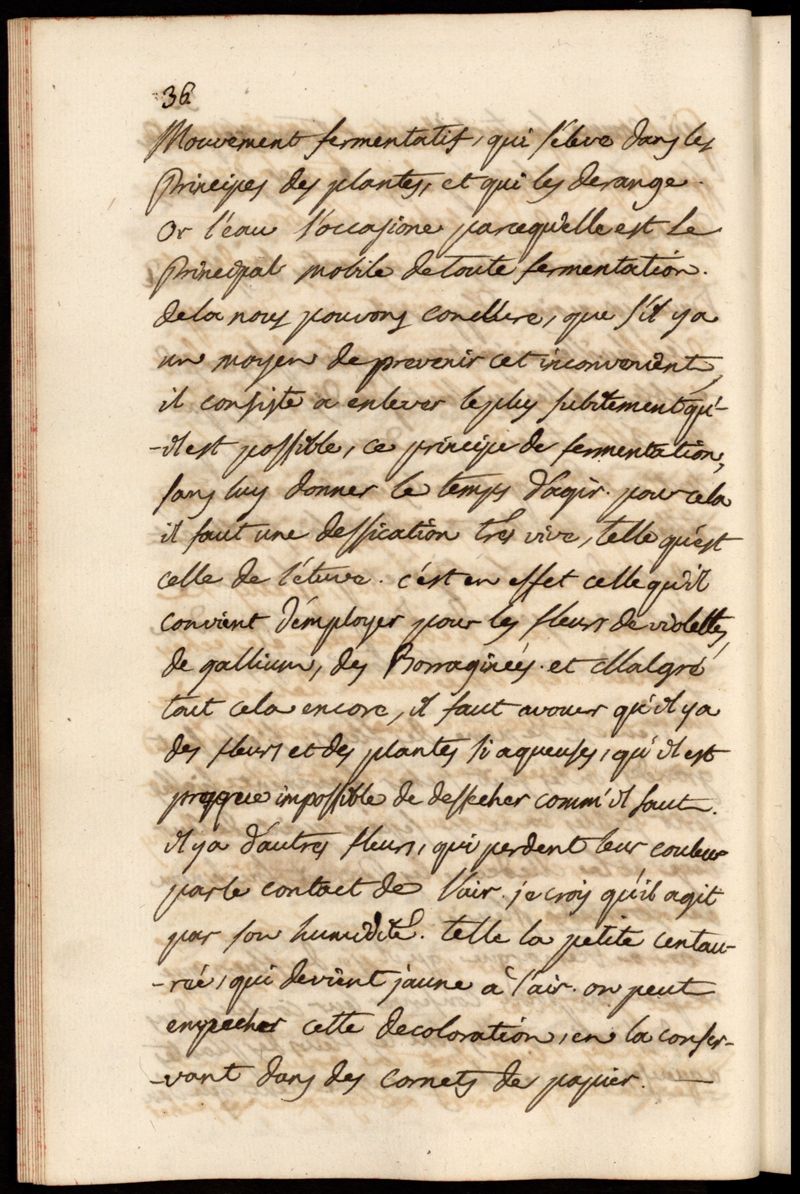 36
Mouvement fermentatif, qui s'éleve dans les
Principes des plantes, et qui les derange.
Or l'eau l'occasione parcequ'elle est le
Principal mobile de toute fermentation.
de la nous pouvons concllure, que s'il y a
un moyen de prevenir cet inconvenient,
il consiste a enlever le plus subitement qu'-
-il est possible, ce principe de fermentation,
sans luy donner le temps d'agir. pour cela
il faut une dessication très vive, telle qu'est
celle de l'étuve. c'est en effet celle qu'il
convient d'émployer pour les fleurs de violettes,
de gallium, des Borraginées. et Malgré
tout cela encore, il faut avouer qu'il y a
des fleurs et des plantes si aqueuses, qu'il est
presque impossible de dessecher comm'il faut.
il y a d'autres fleurs, qui perdent leur couleur
par le contact de l'air. je crois qu'il agit
par son humidité. telle la petite centau-
-rée, qui devient jaune à l'air. on peut
empecher cette decoloration, en la conser-
-vant dans des cornets de papier.